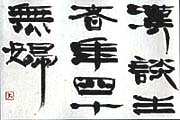 漢談生
者年四十
無婦